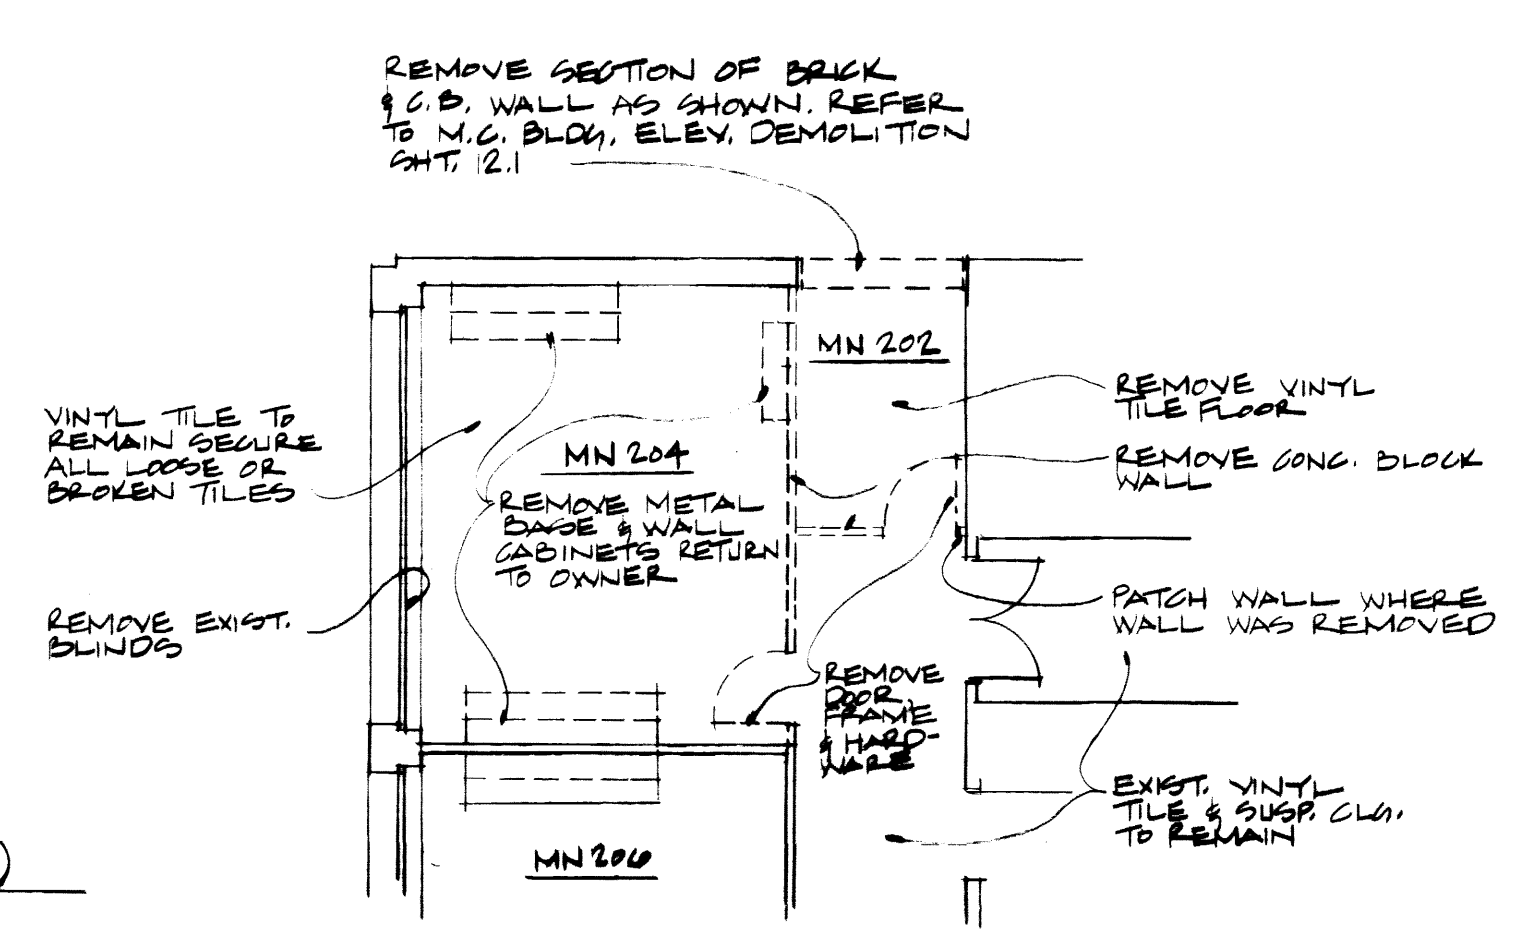 REMOVE SECTION OF BRICK
& C.B. WALL AS SHOWN. REFER
TO M.C. BLDG. ELEV. DEMOLITION
SHT. 12.1
MN 202
REMOVE VINYL
TILE FLOOR
VINYL TILE TO
REMAIN SECURE
ALL LOOSE OR
BROKEN TILES
MN 204
REMOVE CONC. BLOCK
WALL
REMOVE METAL
BASE & WALL
CABINETS RETURN
TO OWNER
REMOVE EXIST.
BLINDS
PATCH WALL WHERE
WALL WAS REMOVED
REMOVE
DOOR,
FRAME
& HARD-
WARE
EXIST. VINYL
TILE & SUSP. CLG.
TO REMAIN
MN 206